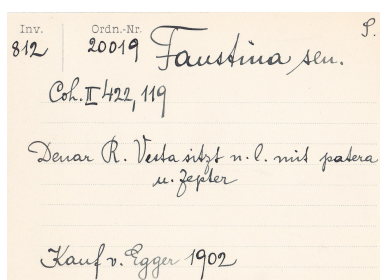 Inv. Ordn.-Nr. S.
812 20019 Faustina sen.
Coh. II 422, 119
Denar R. Vesta sitzt n. l. mit patera
u. Zepter
Kauf v. Egger 1902